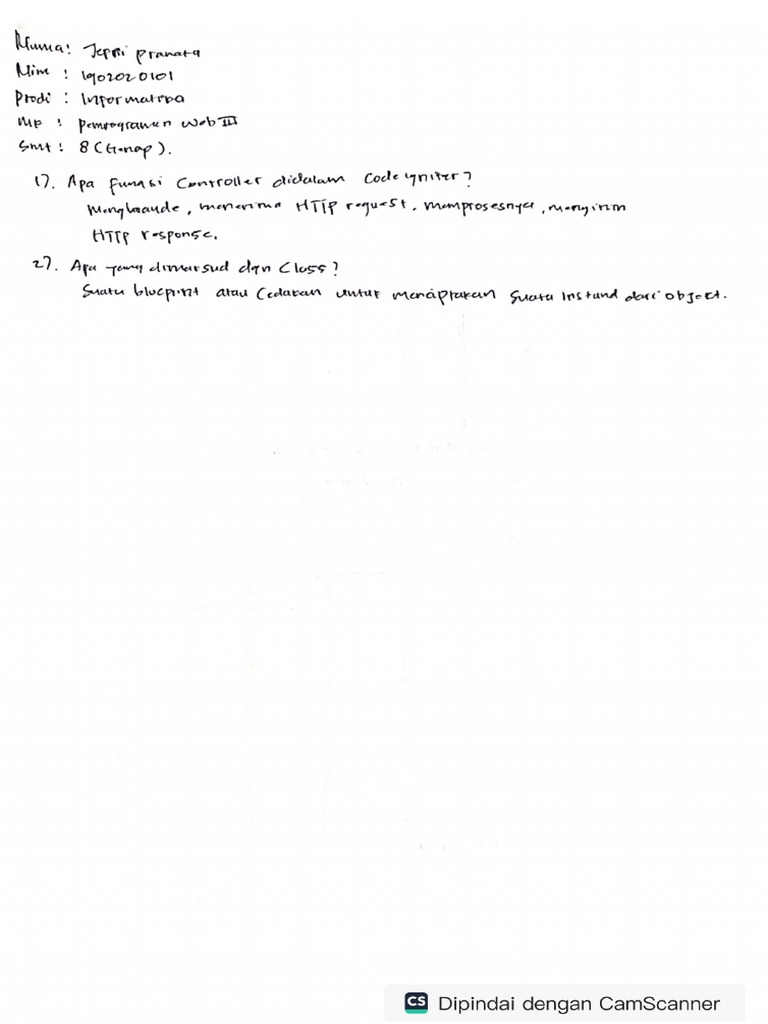 Nama: Jepri Pranata
Nim : 1902020101
Prodi : Informatika
MP : Pemrograman Web III
Smt : 8 (Genap).
1). Apa fungsi Controller didalam Code igniter?
Menghandle, menerima HTTP request, memprosesnya, mengirim
HTTP response.
2). Apa yang dimaksud dgn Class?
Suatu blueprint atau Cetakan untuk menciptakan Suatu Instand dari object.
CS Dipindai dengan CamScanner